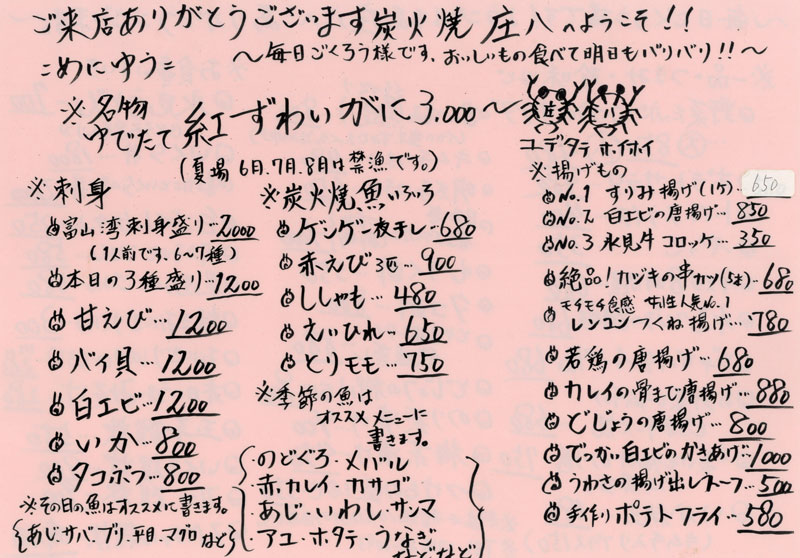 ご来店ありがとうございます炭火焼 庄八へようこそ!!
〜毎日ごくろう様です、おいしいもの食べて明日もバリバリ!!〜
=めにゆう=
※名物
ゆでたて 紅ずわいがに 3,000〜
(夏場 6月、7月、8月は禁漁です。)
ユデタテ ホイホイ
※刺身
富山湾刺身盛り…2,000
(1人前です、6〜7種)
本日の3種盛り…1200
甘えび…1200
バイ貝…1200
白エビ…1200
いか…800
タコボフ…800
※その日の魚はオススメに書きます。
{あじ・サバ・ブリ・平目・マグロ など}
※炭火焼魚いろいろ
ゲンゲ一夜干し…680
赤えび3匹…900
ししゃも…480
えいひれ…650
とりモモ…750
※季節の魚は
オススメメニューに
書きます。
のどぐろ・メバル
赤カレイ・カサゴ
あじ・いわし・サンマ
アユ・ホタテ・うなぎ
などなど
※揚げもの
No.1 すりみ揚げ(1ケ)…650
No.2 白エビの唐揚げ…850
No.3 氷見牛コロッケ…350
絶品!カジキの串カツ(5本)…680
モチモチ食感 女性人気No.1
レンコンつくね揚げ…780
若鶏の唐揚げ…680
カレイの骨まで唐揚げ…880
どじょうの唐揚げ…800
でっかい白エビのかきあげ…1000
うわさの揚げ出しトーフ…500
手作りポテトフライ…580